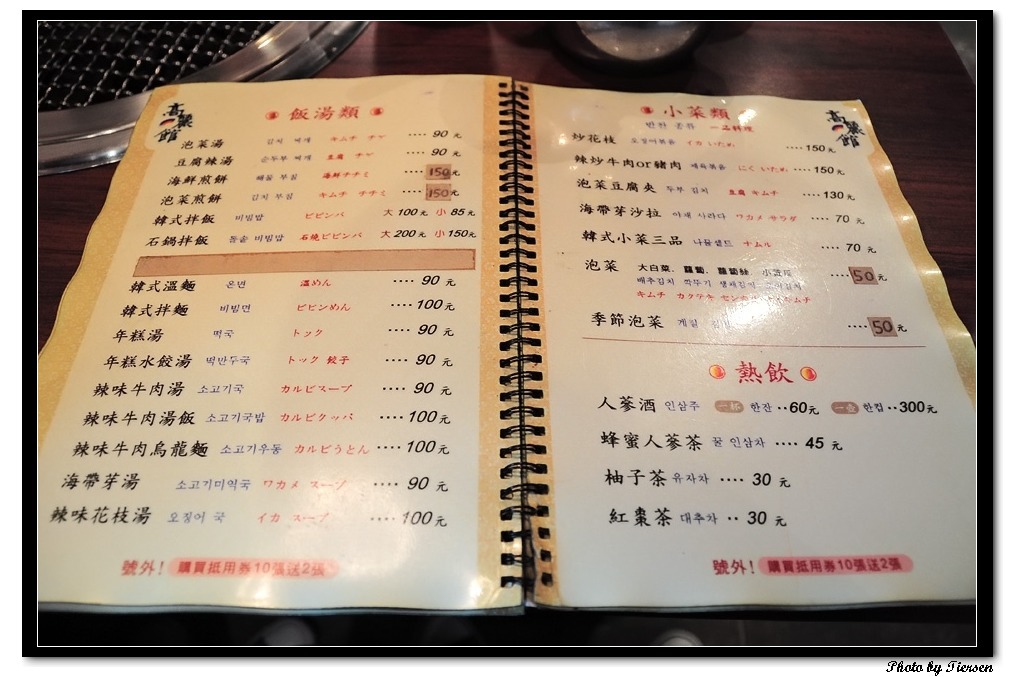 高粱館
飯湯類
泡菜湯 김치 찌개 キムチ チゲ ···· 90 元
豆腐辣湯 순두부 찌개 豆腐 チゲ ···· 90 元
海鮮煎餅 해물 부침 海鮮チヂミ ···· 150元
泡菜煎餅 김치 부침 キムチ チヂミ ···· 150元
韓式拌飯 비빔밥 ビビンバ 大 100元 小 85元
石鍋拌飯 돌솥 비빔밥 石焼ビビンバ 大 200元 小 150元
韓式溫麵 온면 温めん ···· 90 元
韓式拌麵 비빔면 ビビンめん ···· 100元
年糕湯 떡국 トック ···· 90 元
年糕水餃湯 떡만두국 トック 餃子 ···· 90 元
辣味牛肉湯 소고기국 カルビスープ ···· 90 元
辣味牛肉湯飯 소고기국밥 カルビクッパ ···· 100元
辣味牛肉烏龍麵 소고기우동 カルビうとん ···· 100元
海帶芽湯 소고기미역국 ワカメ スープ ···· 90 元
辣味花枝湯 오징어 국 イカ スープ ···· 100元
號外! 購買抵用券10張送2張
小菜類
반찬 종류 一品料理
炒花枝 오징어볶음 イカ いため ····150元
辣炒牛肉or豬肉 제육볶음 にく いため ····150元
泡菜豆腐夾 두부 김치 豆腐 キムチ ···· 130元
海帶芽沙拉 야채 사라다 ワカメ サラダ ···· 70 元
韓式小菜三品 나물셀트 ナムル ···· 70 元
泡菜 大白菜. 蘿蔔. 蘿蔔絲. ····50元
배추김치 깍두기 생채김치
キムチ カクテキ
季節泡菜 계절 ····50元
熱飲
人蔘酒 인삼주 一杯 한잔 ··60元 一壺 한컵 ··300元
蜂蜜人蔘茶 꿀 인삼차 ···· 45 元
柚子茶 유자차 ···· 30 元
紅棗茶 대추차 ·· 30 元
號外! 購買抵用券10張送2張
Photo by Tiersen